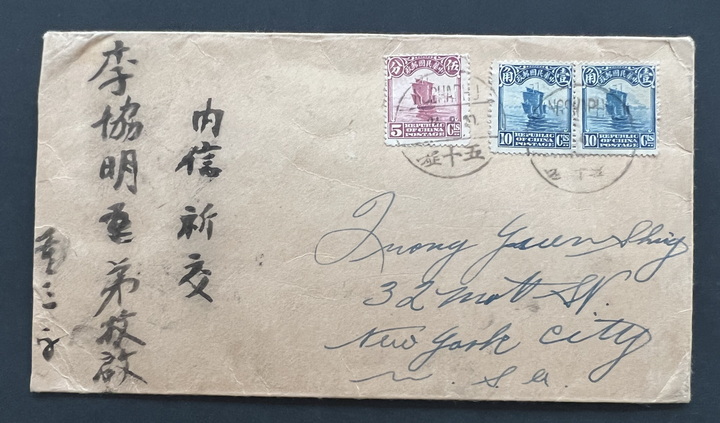 內信祈交
李協明
弟
啟
伍分
中華民國郵政
5 Cts
REPUBLIC
OF CHINA
POSTAGE
壹角
中華民國郵政
10 Cts
REPUBLIC
OF CHINA
POSTAGE
壹角
中華民國郵政
10 Cts
REPUBLIC
OF CHINA
POSTAGE
五十
Yuen Shing
32 Mott St.
New York City
U. S. a.